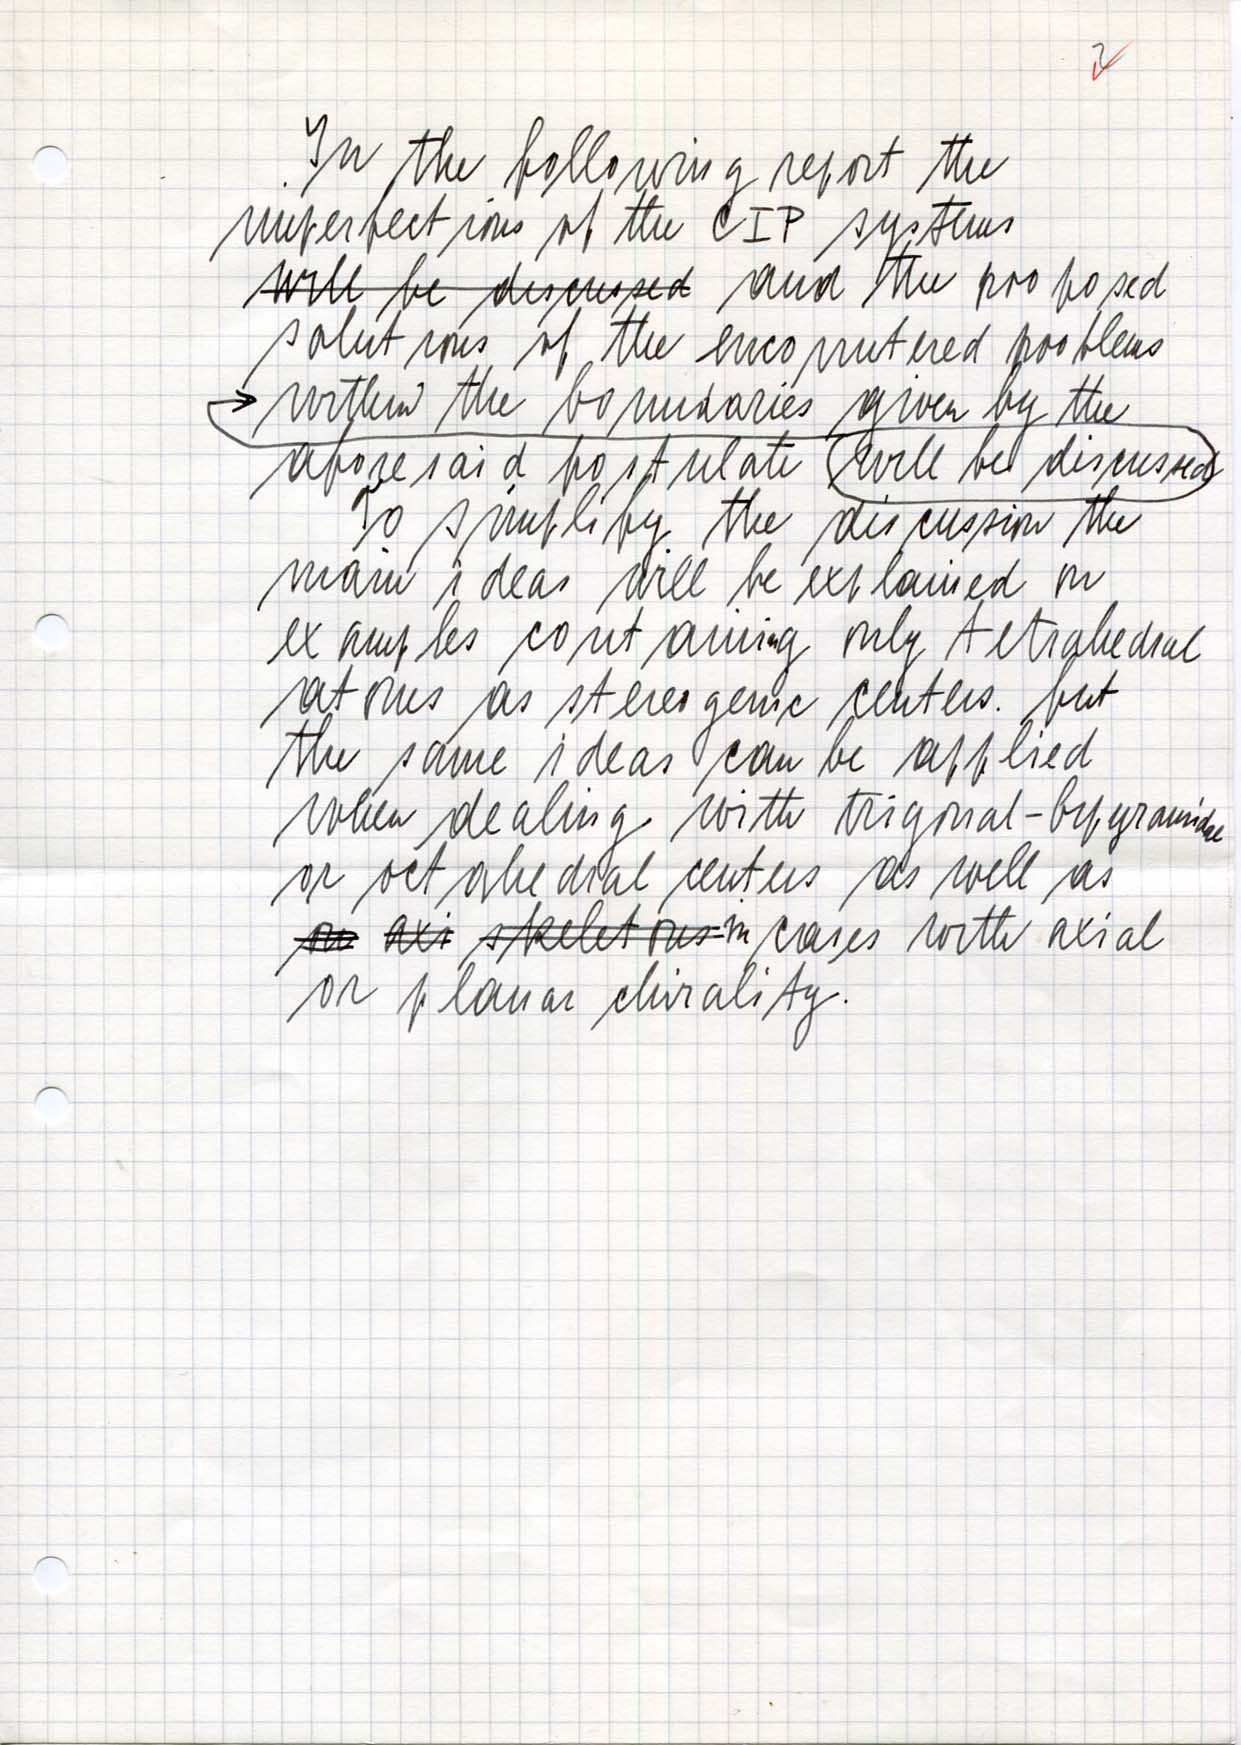 2
In the following report the
imperfections of the CIP systems
will be discussed and the proposed
solutions of the encountered problems
within the boundaries given by the
aforesaid postulate will be discussed
To simplify the discussion the
main ideas will be explained on
examples containing only tetrahedral
atoms as stereogenic centers. but
the same ideas can be applied
when dealing with trigonal-bipyramidal
or octahedral centers as well as
axi skeletons in cases with axial
or planar chirality.